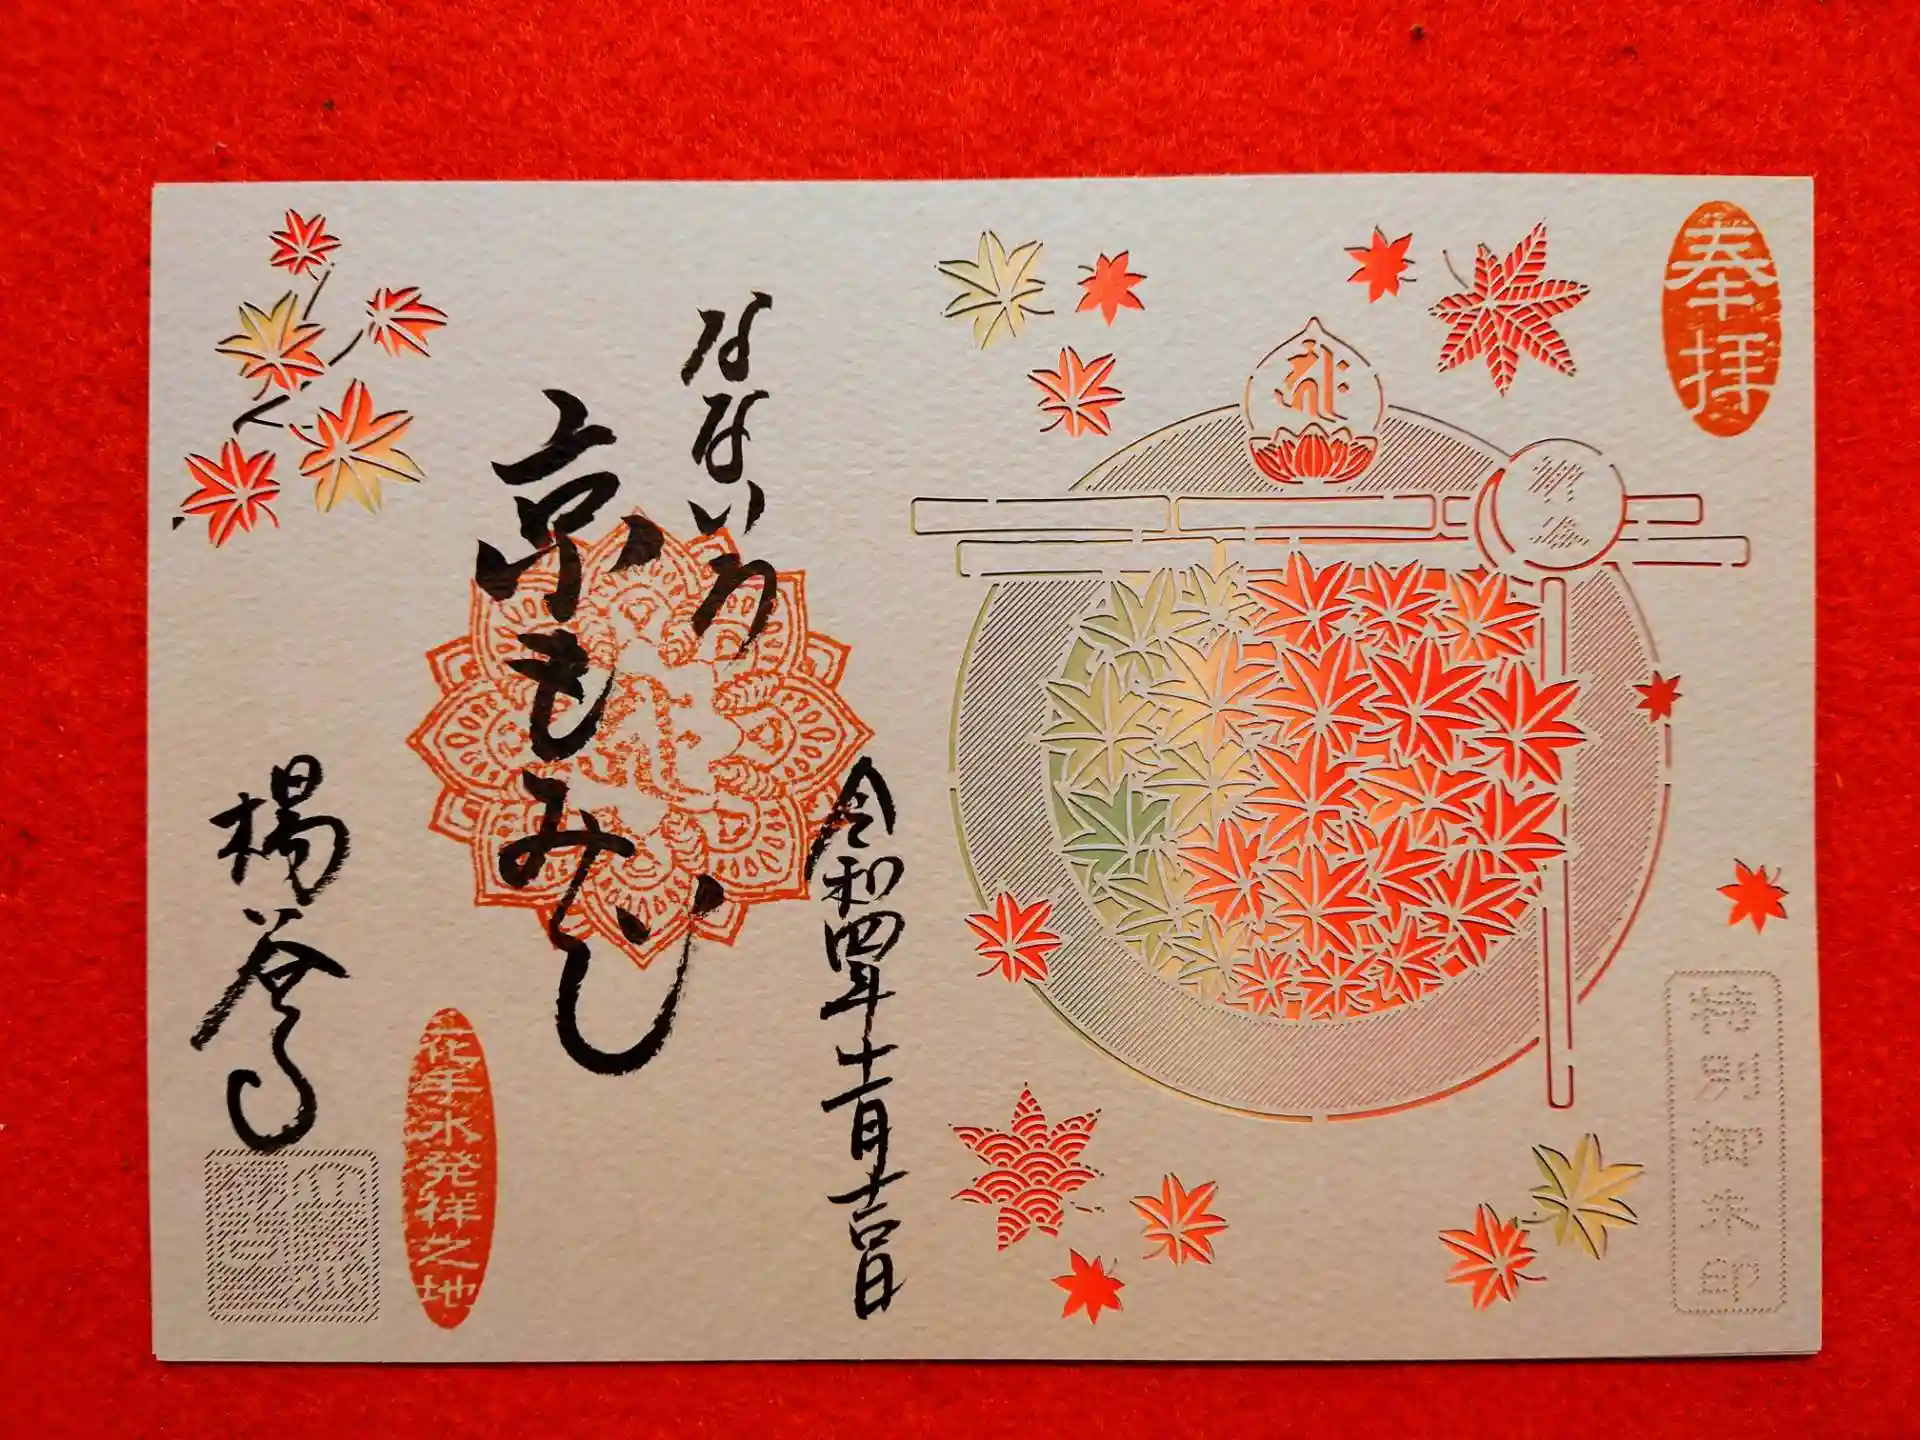 奉拝
特別御朱印
令和四年十一月吉日
なないろ
京もみじ
花手水発祥之地
楊谷寺